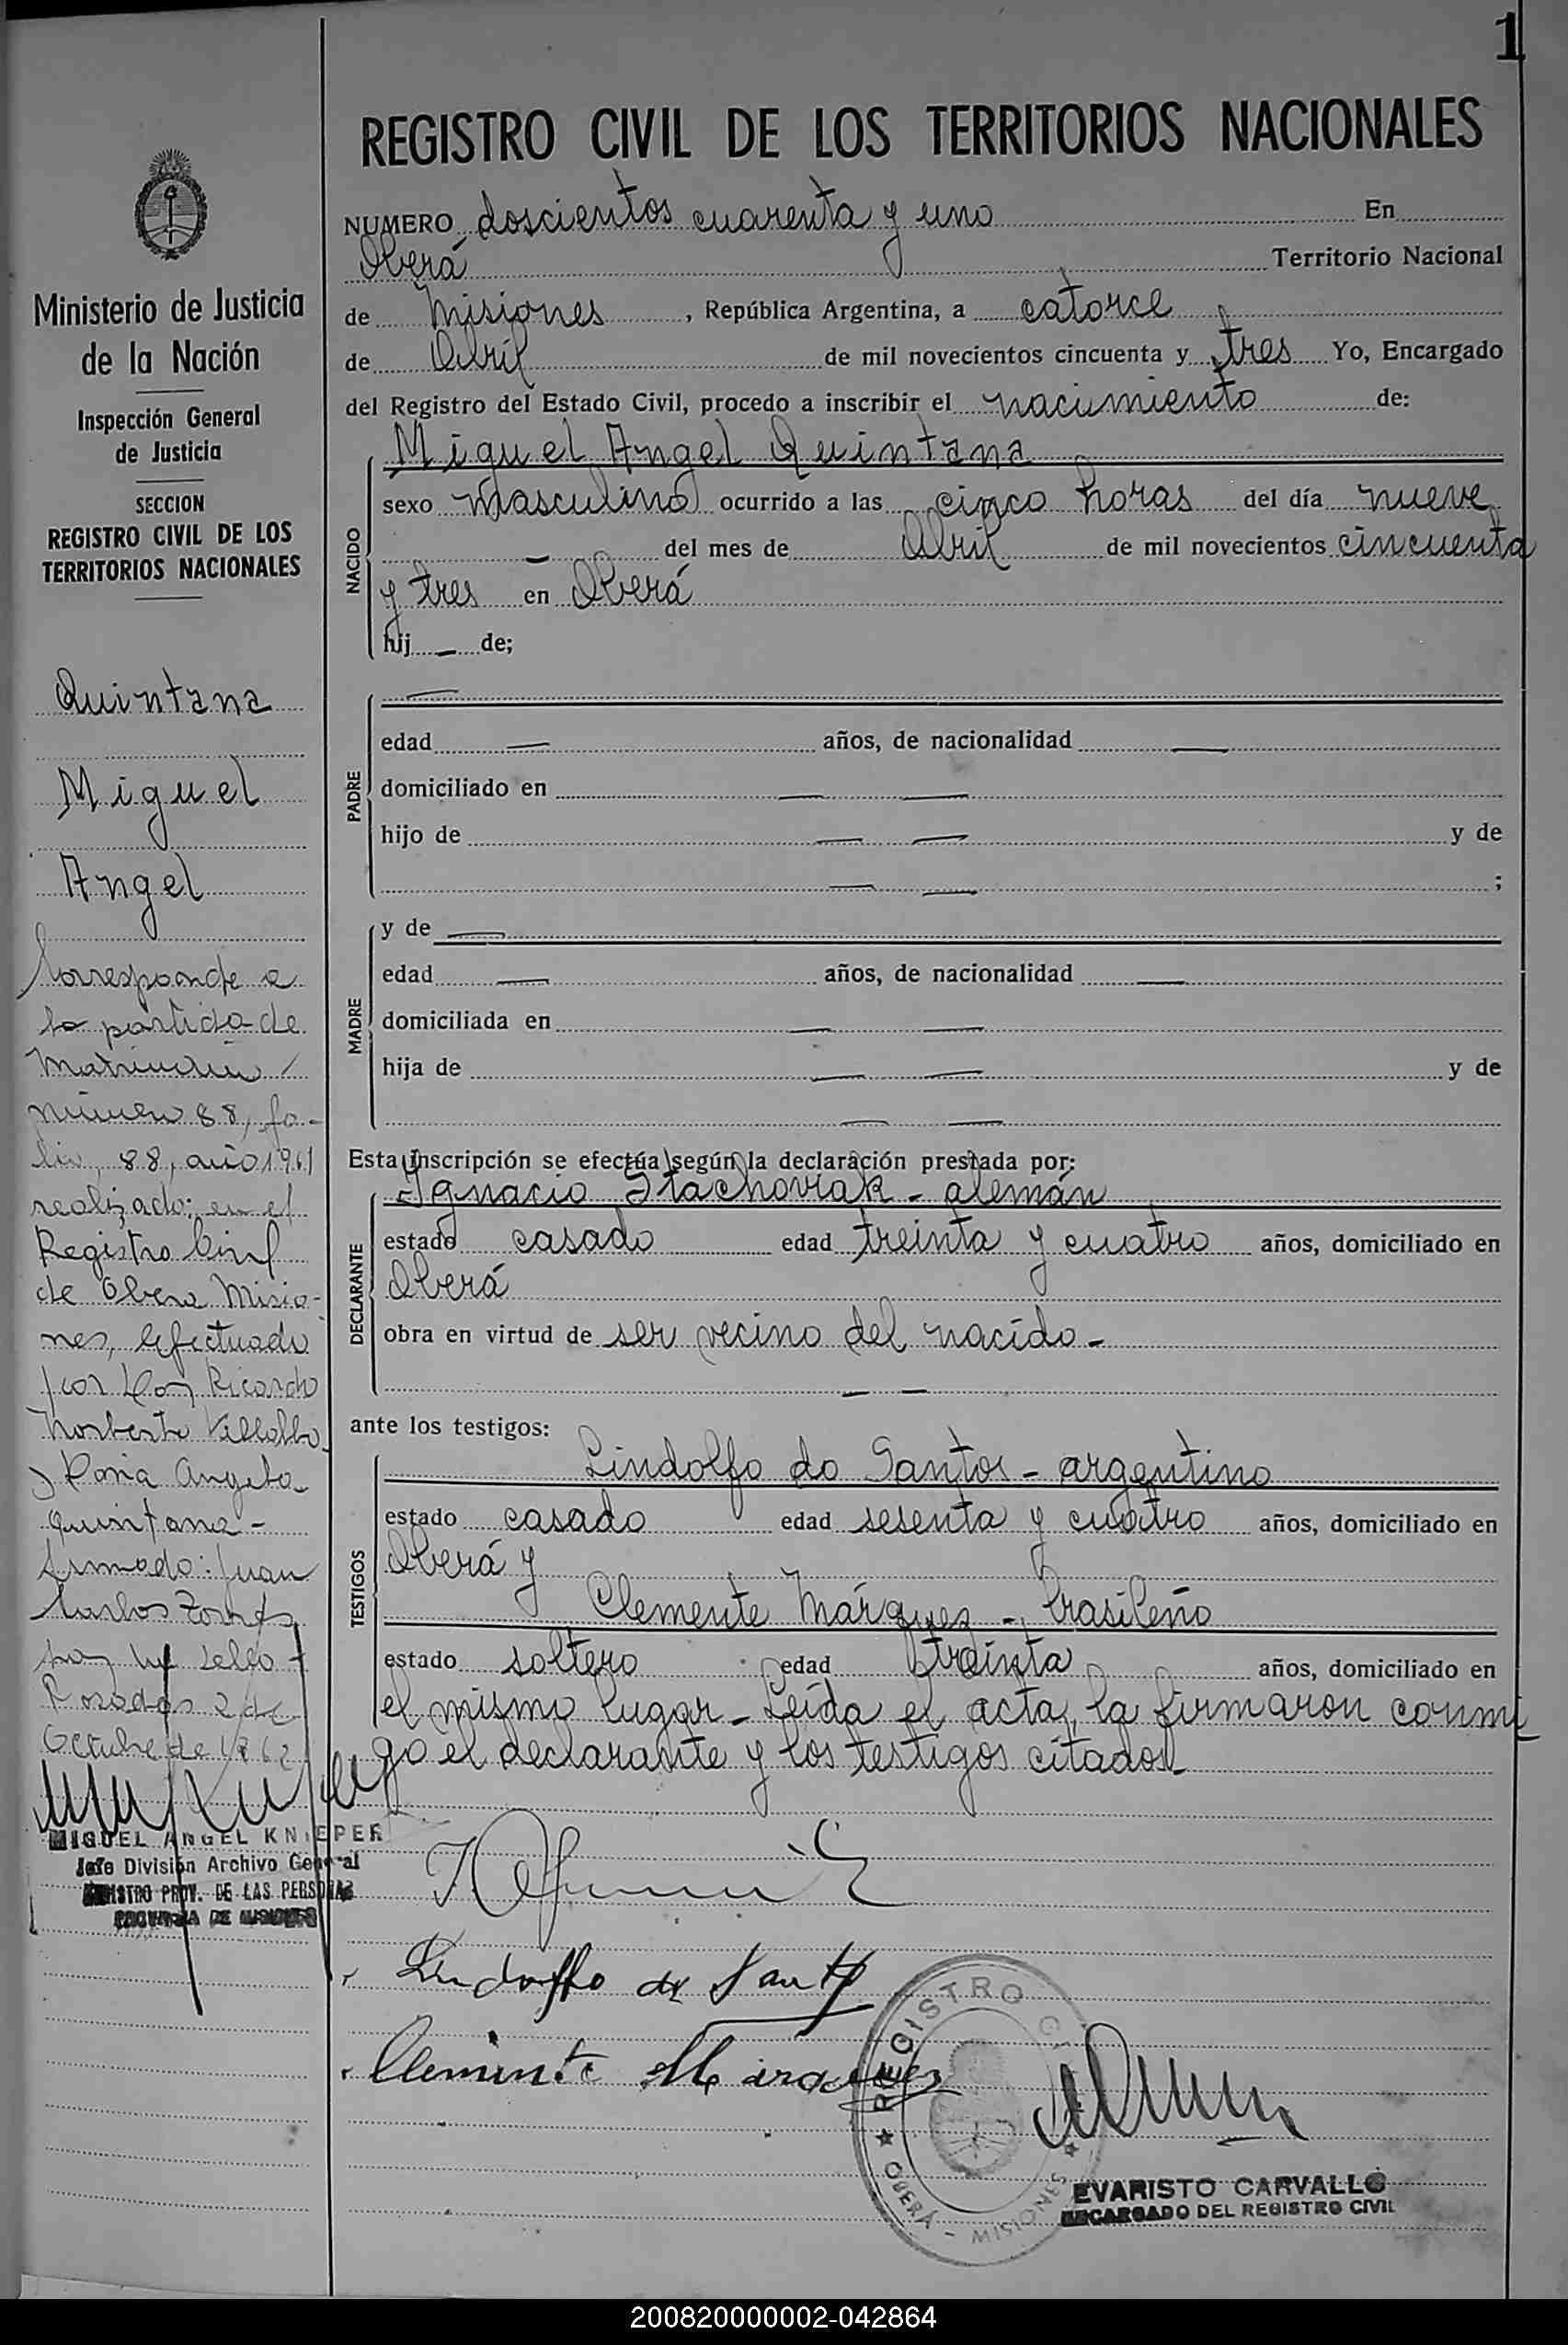 1
REGISTRO CIVIL DE LOS TERRITORIOS NACIONALES
NUMERO doscientos cuarenta y uno En
Oberá Territorio Nacional
de Misiones, República Argentina, a catorce
de Abril de mil novecientos cincuenta y tres Yo, Encargado
del Registro del Estado Civil, procedo a inscribir el nacimiento de:
NACIDO
Miguel Angel Quintana
sexo masculino ocurrido a las cinco horas del día nueve
— del mes de Abril de mil novecientos cincuenta
y tres en Oberá
hij — de;
PADRE
—
edad — años, de nacionalidad —
domiciliado en — —
hijo de — — y de
— — ;
MADRE
y de —
edad — años, de nacionalidad —
domiciliada en — —
hija de — — y de
— —
Esta inscripción se efectúa según la declaración prestada por:
DECLARANTE
Ignacio Stachoviak - alemán
estado casado edad treinta y cuatro años, domiciliado en
Oberá
obra en virtud de ser vecino del nacido -
— —
ante los testigos:
TESTIGOS
Lindolfo do Santos - argentino
estado casado edad sesenta y cuatro años, domiciliado en
Oberá y
Clemente Márquez - brasileño
estado soltero edad treinta años, domiciliado en
el mismo lugar - Leída el acta, la firmaron conmi
go el declarante y los testigos citados -
Lindolfo do Santos
Clemente Marquez
REGISTRO CIVIL
OBERÁ - MISIONES
EVARISTO CARVALLO
ENCARGADO DEL REGISTRO CIVIL
Ministerio de Justicia
de la Nación
Inspección General
de Justicia
SECCION
REGISTRO CIVIL DE LOS
TERRITORIOS NACIONALES
Quintana
Miguel
Angel
Corresponde a
la partida de
Matrimonio
número 88, fo-
lio, 88, año 1961
realizado: en el
Registro Civil
de Obera Misio-
nes, efectuado
por Don Ricardo
Norberto Villalba
y Doña Angela
Quintana -
Firmado: Juan
Carlos
hay un sello -
Posadas 2 de
Octubre de 1962
MIGUEL ANGEL KNIEPER
Jefe División Archivo General
REGISTRO PROV. DE LAS PERSONAS
PROVINCIA DE MISIONES
200820000002-042864